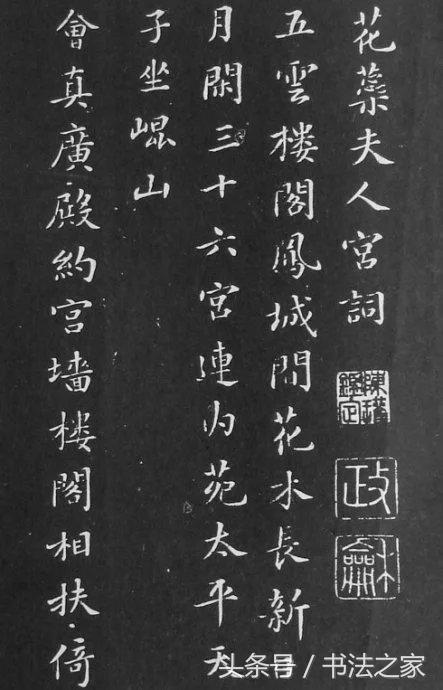 花蘂夫人宮詞
政
龢
五雲楼閣鳳城間花木長新
月閑三十六宮連内苑太平天
子坐崐山
會真廣殿約宮墻楼閣相扶倚
头条号 / 书法之家